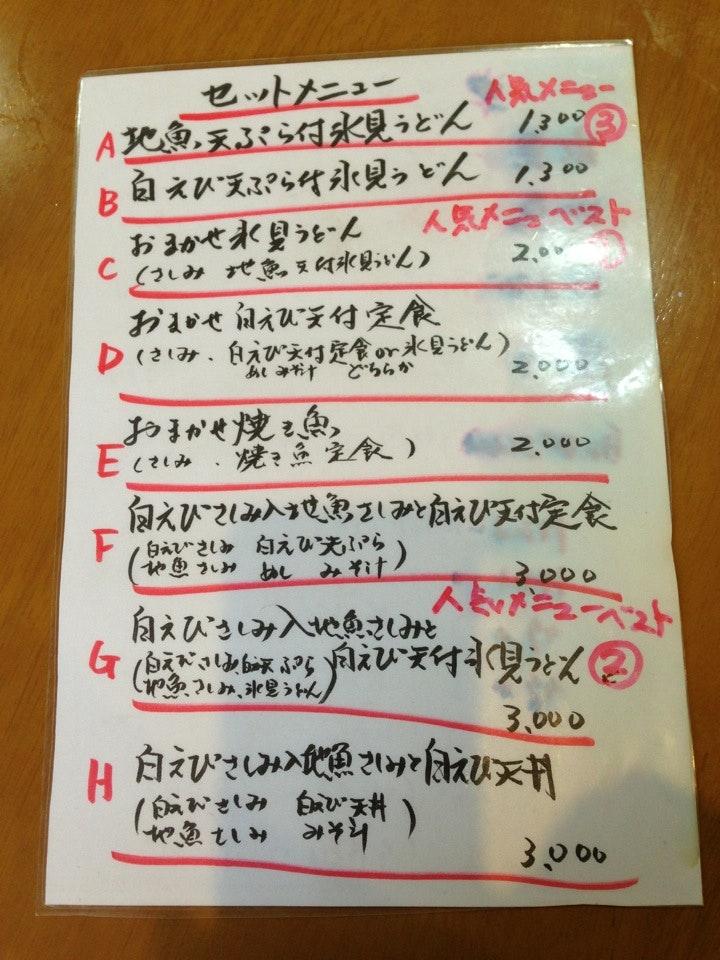 セットメニュー
人気メニュー
A 地魚天ぷら付氷見うどん 1,300 ③
B 白えび天ぷら付氷見うどん 1,300
人気メニューベスト
C おまかせ氷見うどん 2,000 ①
(さしみ 地魚天付氷見うどん)
D おまかせ白えび天付定食
(さしみ、白えび天付定食or氷見うどん)
めしみそ汁 どちらか 2,000
E おまかせ焼き魚 2,000
(さしみ、焼き魚定食)
F 白えびさしみ入地魚さしみと白えび天付定食
(白えびさしみ 白えび天ぷら
地魚さしみ めし みそ汁)
3,000
人気メニューベスト
G 白えびさしみ入地魚さしみと
白えび天付氷見うどん ②
(白えびさしみ、白えび天ぷら
地魚さしみ、氷見うどん)
3,000
H 白えびさしみ入地魚さしみと白えび天丼
(白えびさしみ 白えび天丼
地魚さしみ みそ汁)
3,000